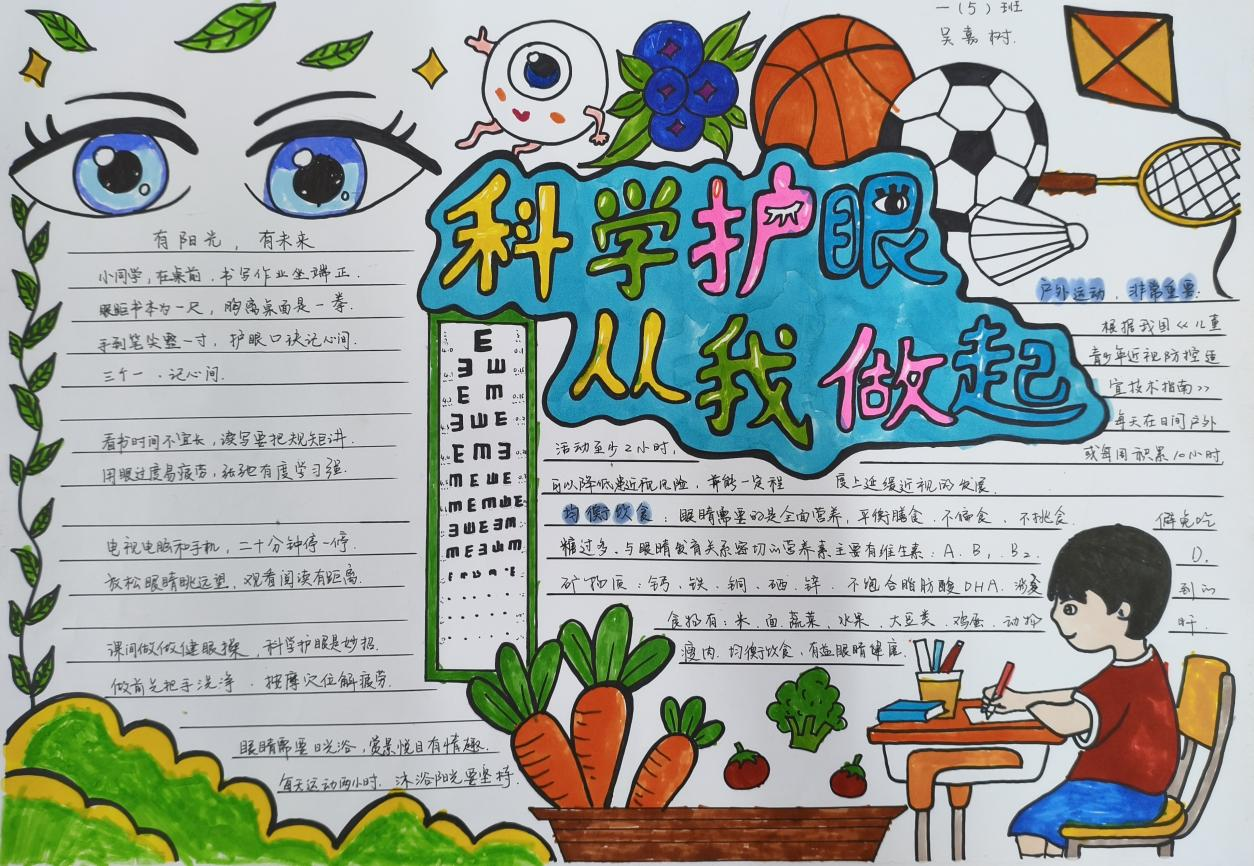 一（5）班
吴嘉树.
科学护眼
从我做起
有阳光，有未来
小同学,在桌前.书写作业坐端正.
眼距书本为一尺，胸离桌面是一拳.
手到笔尖整一寸，护眼口诀记心间.
三个一.记心间.
看书时间不宜长，读写要把规矩讲.
用眼过度易疲劳，张弛有度学习强.
电视电脑和手机，二十分钟停一停.
放松眼睛眺远望，观看阅读有距离.
课间做做健眼操，科学护眼是妙招.
做前先把手洗净.按摩穴位解疲劳.
眼睛需要日光浴，赏景悦目有情趣.
每天运动两小时.沐浴阳光要坚持.
E
ƎШ
E m
户外运动，非常重要.
根据我国《儿童
青少年近视防控适
宜技术指南》
每天在日间户外
活动至少2小时，
或每周积累10小时
可以降低患近视风险，并能一定程 度上延缓近视的发展.
均衡饮食：眼睛需要的是全面营养，平衡膳食.不偏食.不挑食. 避免吃
糖过多.与眼睛发育关系密切的营养素主要有维生素：A.B₁.B₂. D.
矿物质：钙.铁.铜.硒.锌.不饱合脂肪酸DHA. 到的
食物有：米.面蔬菜.水果.大豆类.鸡蛋.动物 肝.
瘦肉.均衡饮食.有益眼睛健康.